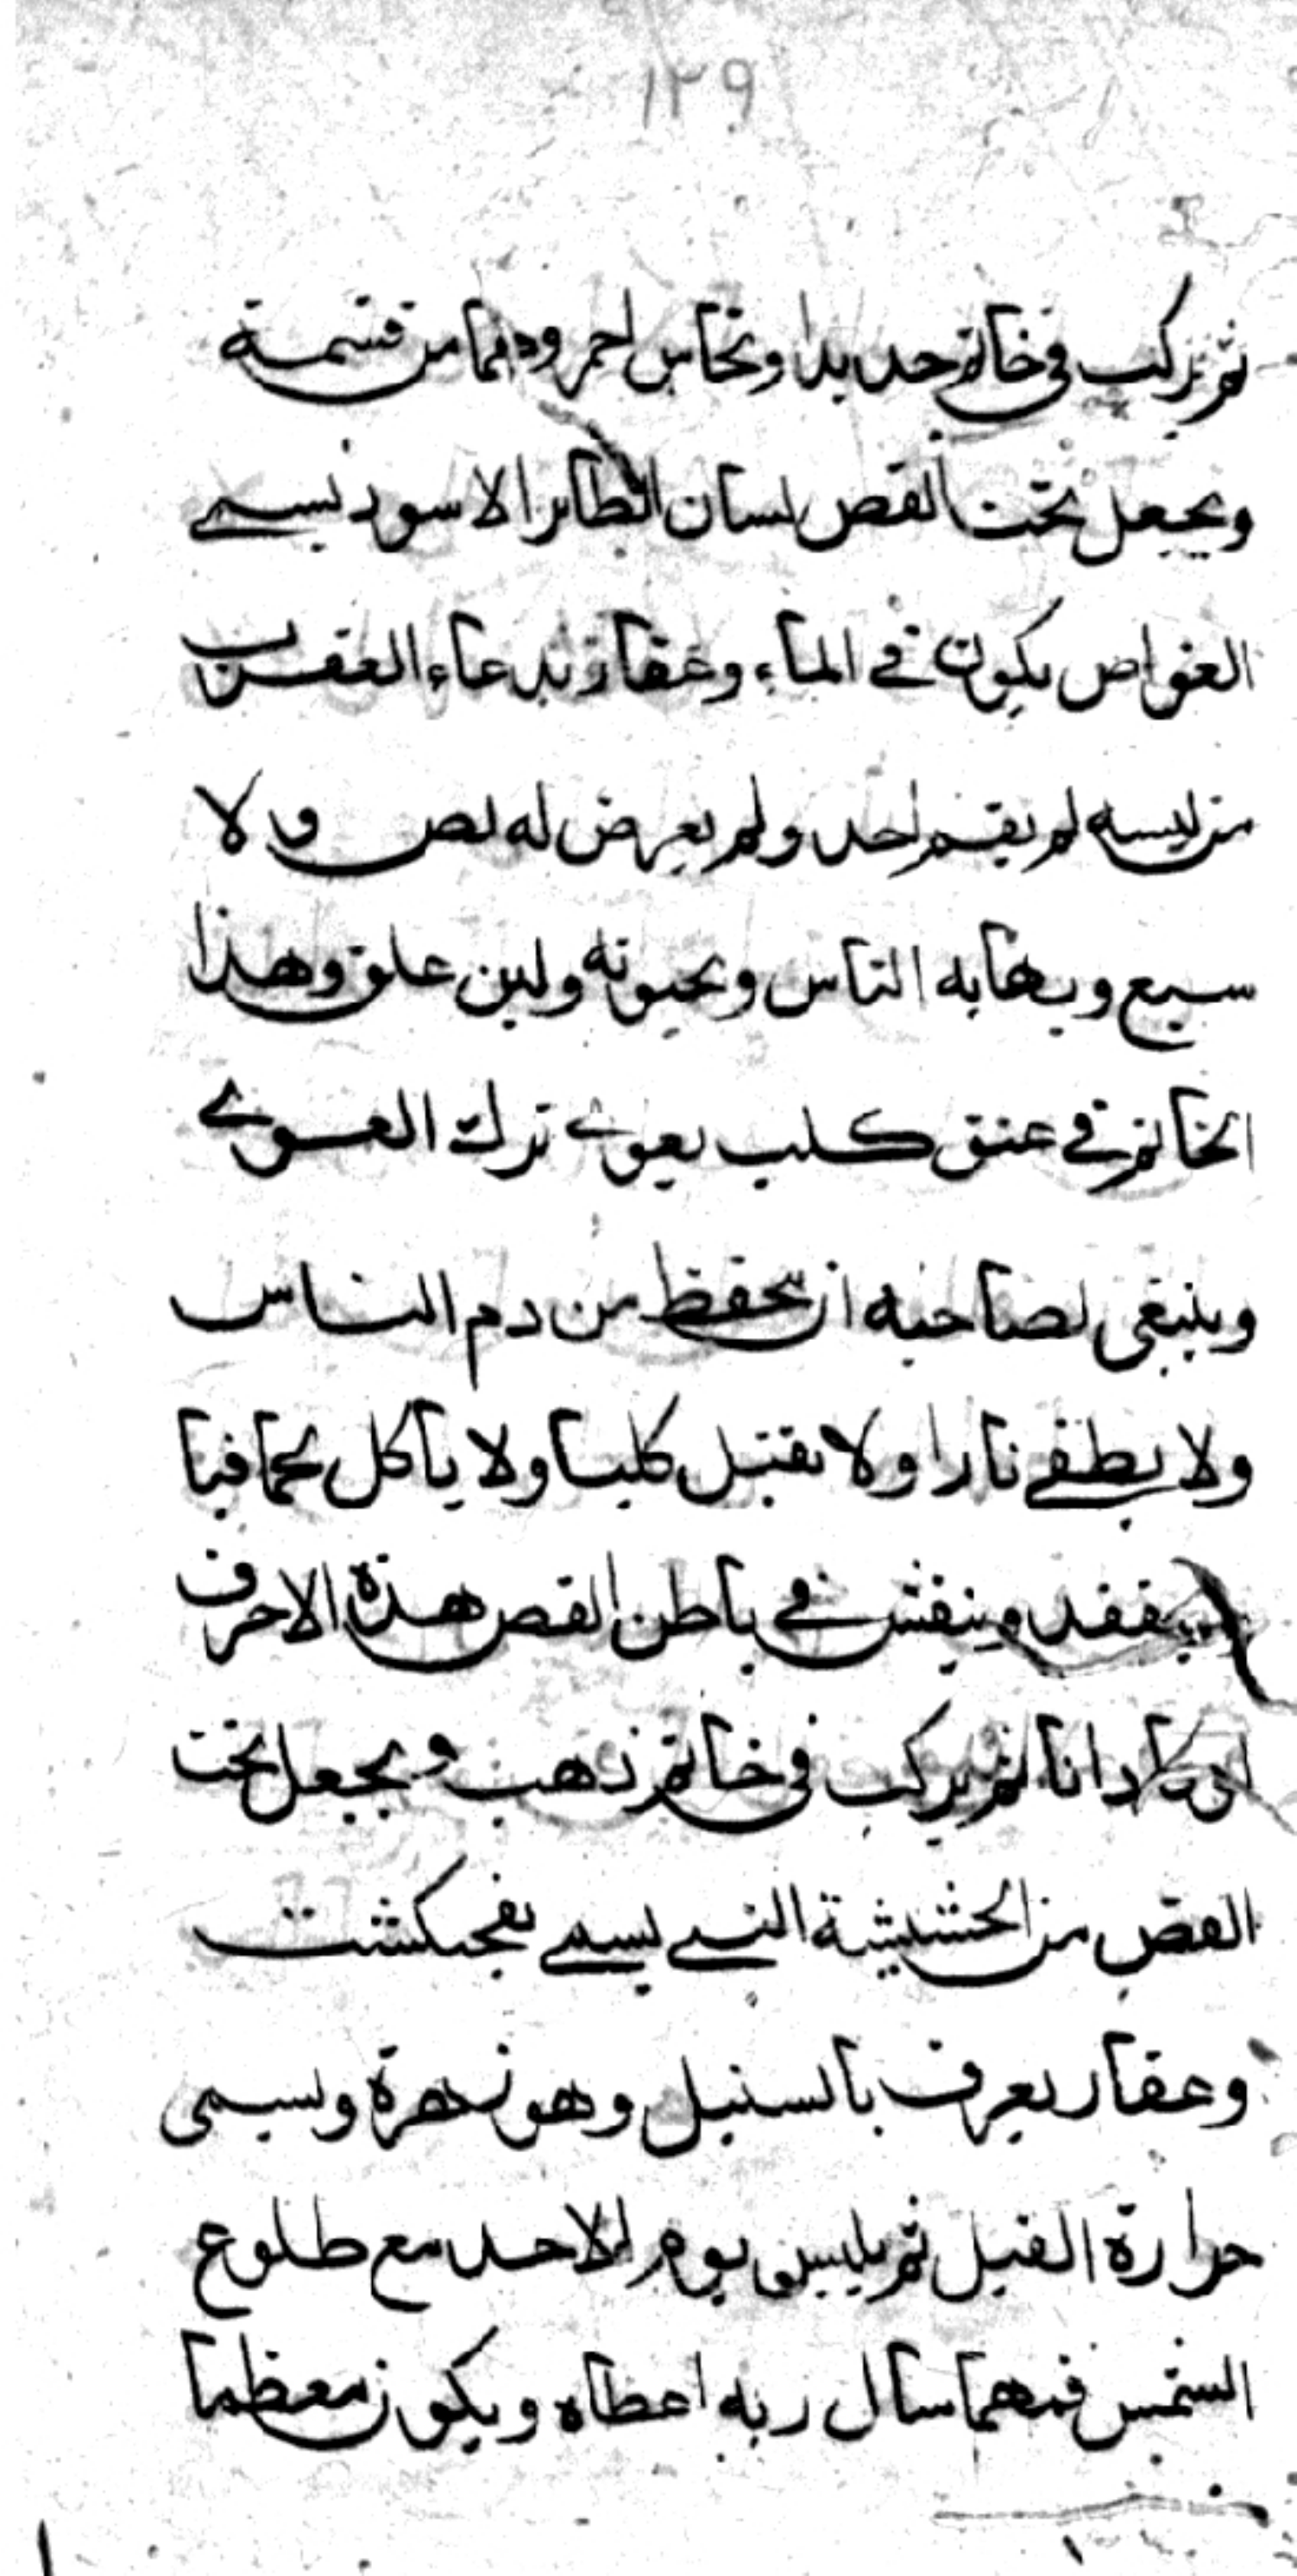 ١٢٩
ثم يركب في خاتم حديدا ونحاس احمر وهما من قسمة
ويجعل تحت الفص لسان الطائر الاسود يسمى
الغواص يكون في الماء وعقار يدعاء العقرب
من لبسه لم يقم احد ولم يعرض له لص ولا
سبع ويهابه الناس ويحبونه ولين علق وهذا
الخاتم في عنق كلب يعوي ترك العوي
وينبغي لصاحبه ان يتحفظ من دم الناس
ولا يطفي نارا ولا يقتل كلبا ولا ياكل لحما فيا
يفقد وينقش في باطن الفص هذه الاحرف
دانا ثم يركب في خاتم ذهب ويجعل تحت
الفص من الحشيشة التي يسمى بفجنكشت
وعقار يعرف بالسنبل وهو زهرة ويسمى
حرارة الفيل ثم يلبس يوم الاحد مع طلوع
الشمس فمهما سال ربه اعطاه ويكون معظما